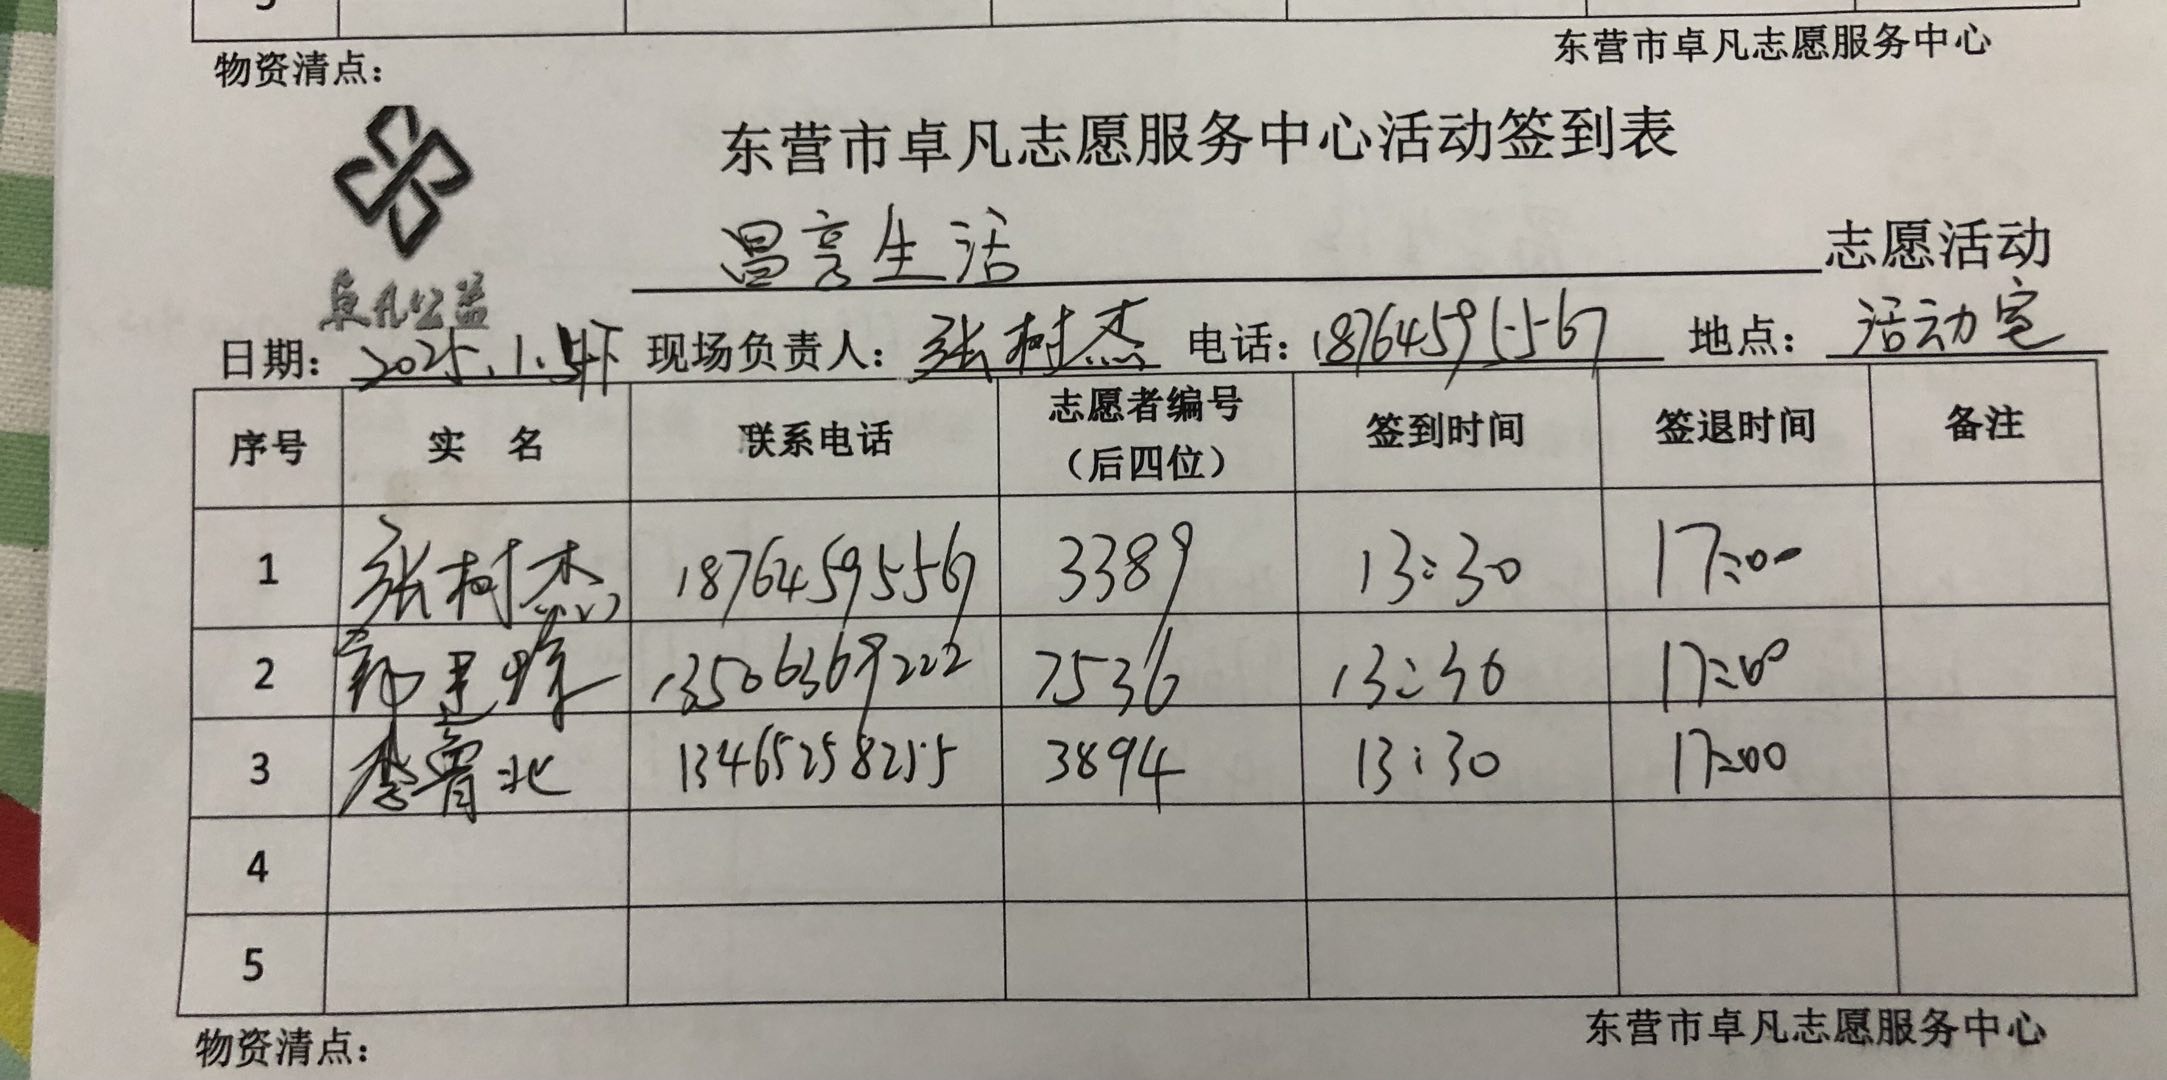 物资清点：
东营市卓凡志愿服务中心
东营市卓凡志愿服务中心活动签到表
昌亮生活 志愿活动
卓凡公益
日期：2025.1.5 现场负责人：张树杰 电话：18764595567 地点：活动室
序号 实 名 联系电话 志愿者编号（后四位） 签到时间 签退时间 备注
1 张树杰 18764595567 3389 13:30 17:00
2 13506369222 7536 13:30 17:00
3 李鲁北 13465258255 3894 13:30 17:00
4
5
物资清点：
东营市卓凡志愿服务中心